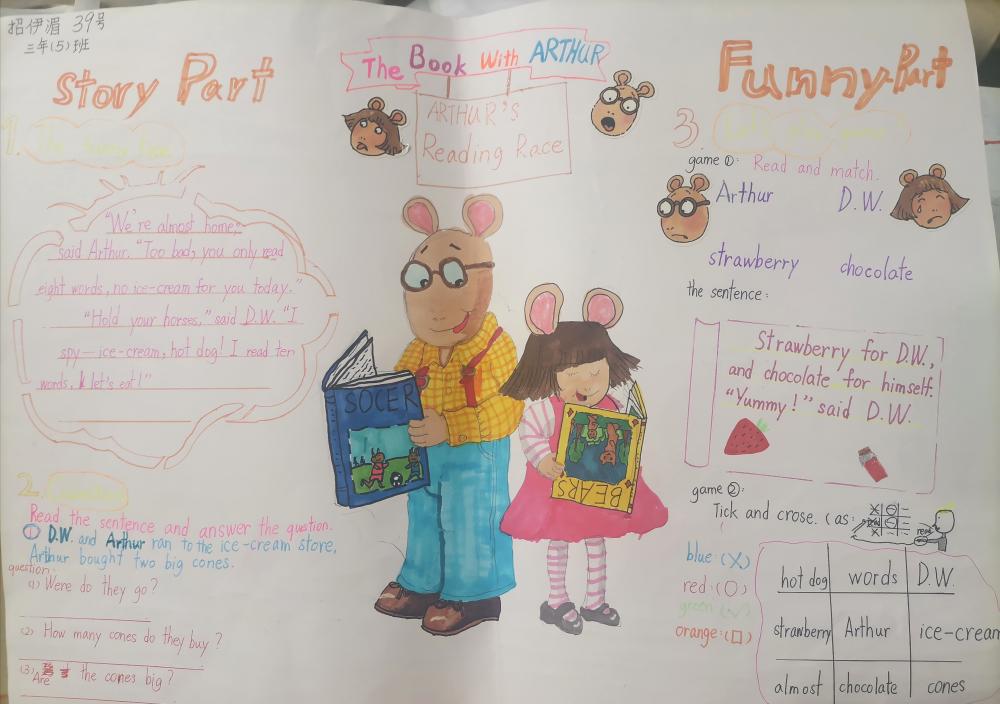 招伊湄 39号
三年(5)班
The Book With ARTHUR
ARTHUR'S
Reading Race
Story Part
1. The funny
"We're almost home,"
said Arthur. "Too bad, you only read
eight words, no ice-cream for you today."
"Hold your horses," said D.W. "I
spy—ice-cream, hot dog! I read ten
words, let's eat!"
2.
Read the sentence and answer the question.
① D.W. and Arthur ran to the ice-cream store,
Arthur bought two big cones.
question:
(1) Were do they go?
(2) How many cones do they buy?
(3) Are the cones big?
SOCER
BEARS
Funny Part
3. Let's
game ①: Read and match.
Arthur D.W.
strawberry chocolate
the sentence:
Strawberry for D.W.,
and chocolate for himself.
"Yummy!" said D.W.
game ②:
Tick and crose. (as:
read
blue: (X)
red: (○)
green: (√)
orange: (□)
hot dog words D.W.
strawberry Arthur ice-cream
almost chocolate cones